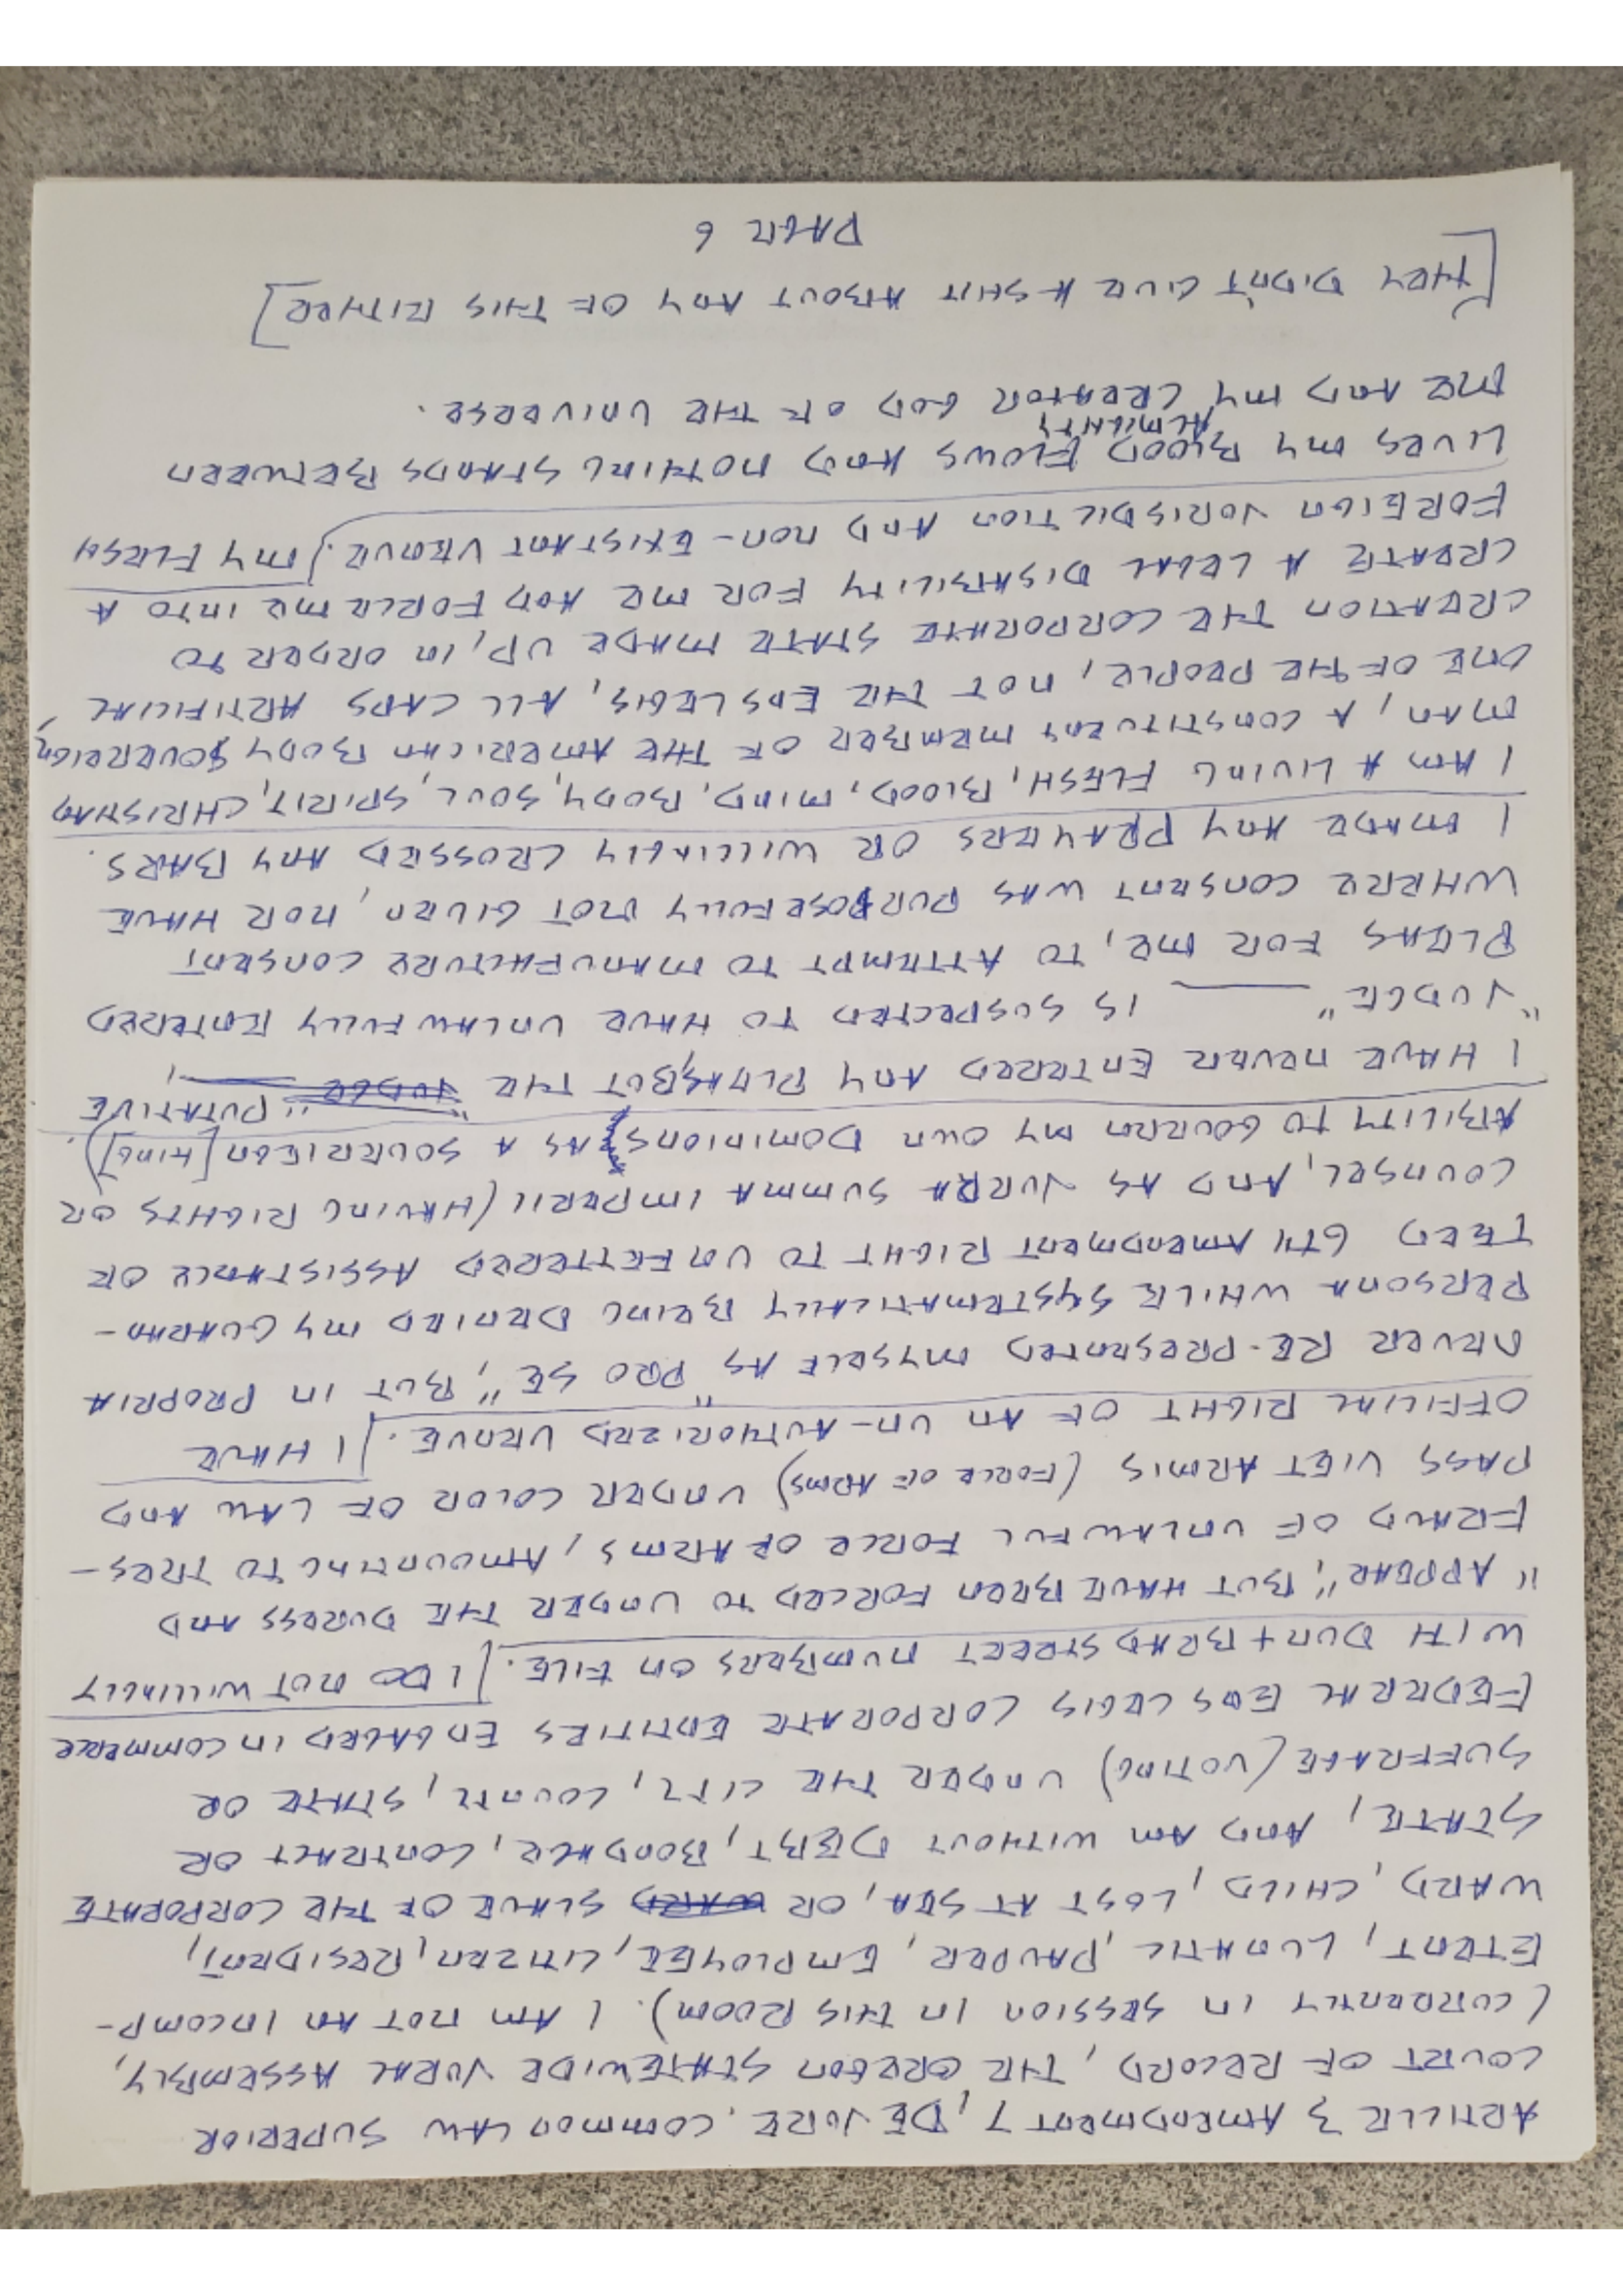 ARTICLE 3 AMENDMENT 7, DE JURE, COMMON LAW SUPERIOR
COURT OF RECORD, THE OREGON STATEWIDE JURAL ASSEMBLY,
(CURRENTLY IN SESSION IN THIS ROOM). I AM NOT AN INCOMP-
ETENT, LUNATIC, PAUPER, EMPLOYEE, CITIZEN, RESIDENT,
WARD, CHILD, LOST AT SEA, OR WARD SLAVE OF THE CORPORATE
STATE, AND AM WITHOUT DEBT, BONDAGE, CONTRACT OR
SUFFRAGE (VOTING) UNDER THE CITY, COUNTY, STATE OR
FEDERAL ENS LEGIS CORPORATE ENTITIES ENGAGED IN COMMERCE
WITH DUN + BRADSTREET NUMBERS ON FILE. I DO NOT WILLINGLY
"APPEAR", BUT HAVE BEEN FORCED TO UNDER THE DURESS AND
FRAUD OF UNLAWFUL FORCE OF ARMS, AMOUNTING TO TRES-
PASS VIET ARMIS (FORCE OF ARMS) UNDER COLOR OF LAW AND
OFFICIAL RIGHT OF AN UN-AUTHORIZED VENUE. I HAVE
NEVER RE-PRESENTED MYSELF AS "PRO SE", BUT IN PROPRIA
PERSONA WHILE SYSTEMATICALLY BEING DENIED MY GUARAN-
TEED 6TH AMENDMENT RIGHT TO UNFETTERED ASSISTANCE OF
COUNSEL, AND AS JURA SUMMA IMPERII (HAVING RIGHTS OR
ABILITY TO GOVERN MY OWN DOMINIONS AS A SOVERIEGN [KING]).
I HAVE NEVER ENTERED ANY PLEAS, BUT THE JUDGE "PUTATIVE
"JUDGE" ____ IS SUSPECTED TO HAVE UNLAWFULLY ENTERED
PLEAS FOR ME, TO ATTEMPT TO MANUFACTURE CONSENT
WHERE CONSENT WAS PURPOSEFULLY NOT GIVEN, NOR HAVE
I MADE ANY PRAYERS OR WILLINGLY CROSSED ANY BARS.
I AM A LIVING FLESH, BLOOD, MIND, BODY, SOUL, SPIRIT, CHRISTIAN
MAN, A CONSTITUENT MEMBER OF THE AMERICAN BODY SOVEREIGN,
ONE OF THE PEOPLE, NOT THE ENS LEGIS, ALL CAPS ARTIFICIAL
CREATION THE CORPORATE STATE MADE UP, IN ORDER TO
CREATE A LEGAL DISABILITY FOR ME AND FORCE ME INTO A
FOREIGN JURISDICTION AND NON-EXISTANT VENUE. MY FLESH
LIVES MY BLOOD FLOWS AND NOTHING STANDS BETWEEN
ME AND MY CREATOR ALMIGHTY GOD OF THE UNIVERSE.
[THEY DIDN'T GIVE A SHIT ABOUT ANY OF THIS EITHER]
PAGE 6